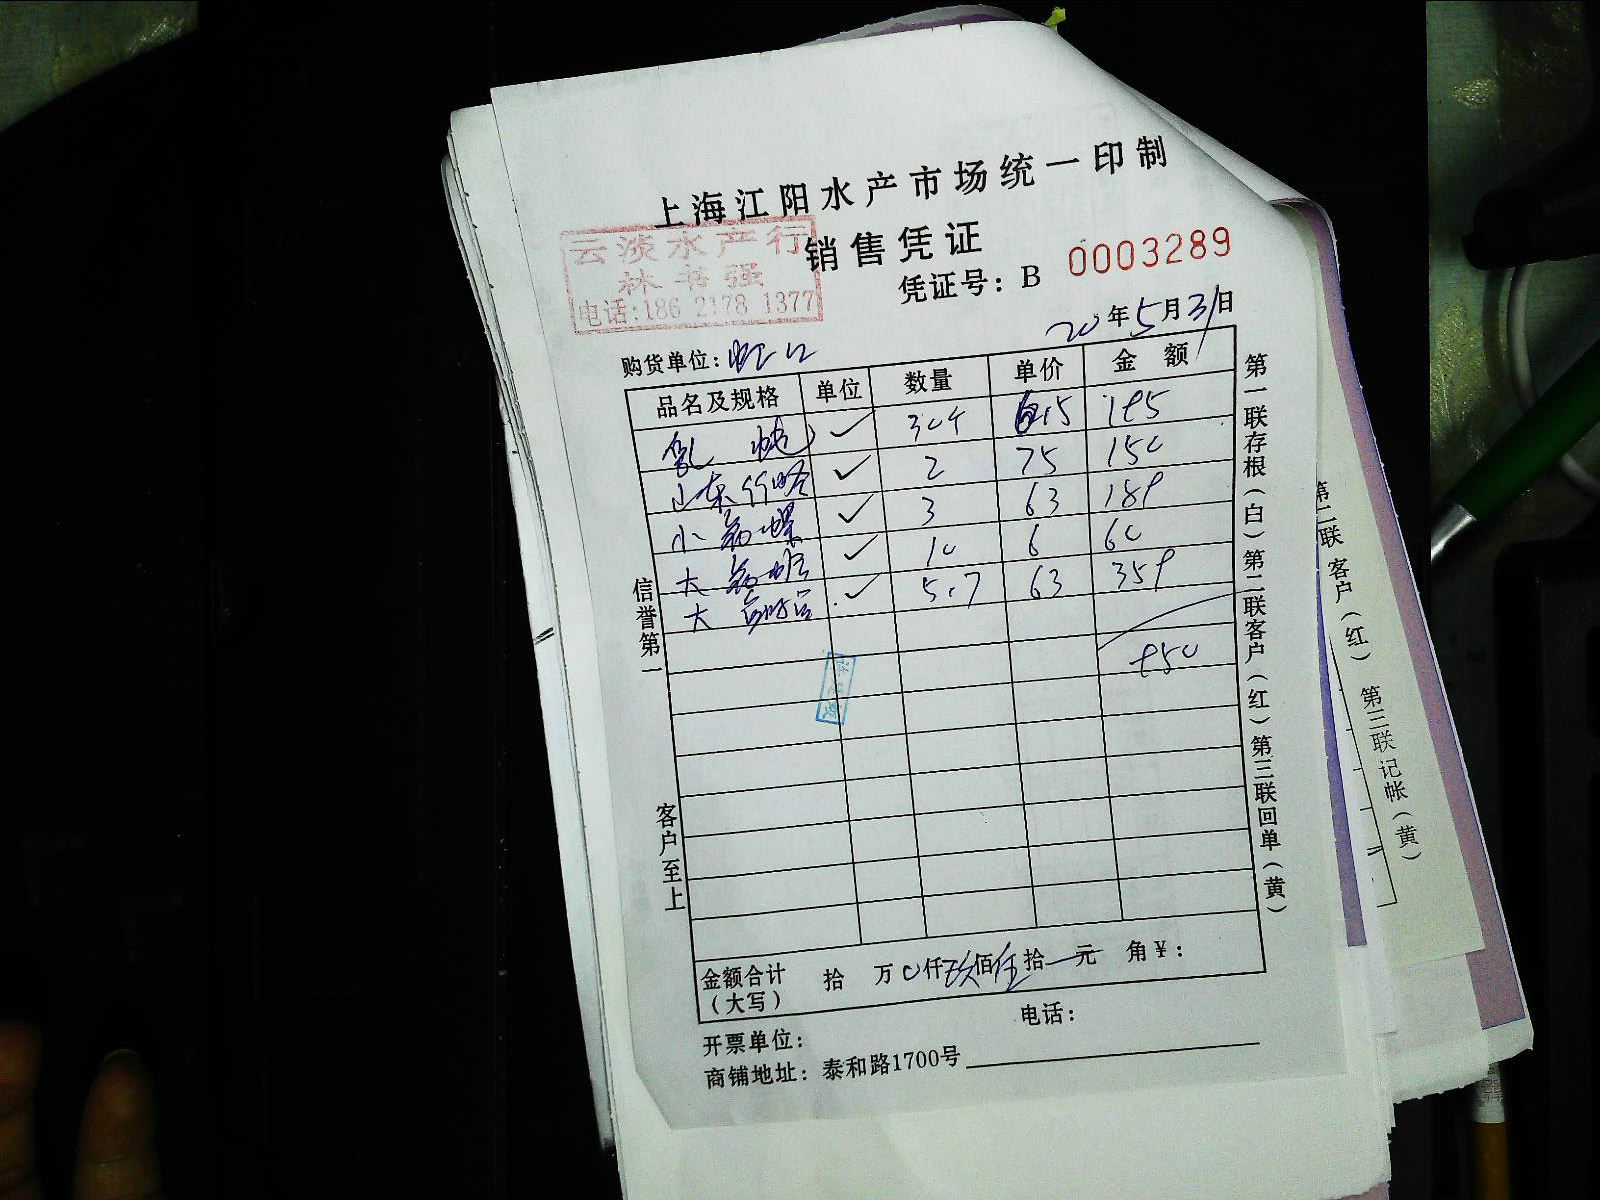 上海江阳水产市场统一印制
销售凭证
云淡水产行
林书强
电话:186 2178 1377
凭证号：B 0003289
20年5月31日
购货单位：虹口
品名及规格 单位 数量 单价 金额
✓ 304 195
山东 ✓ 2 75 150
小 ✓ 3 63 189
大 ✓ 10 6 60
大 ✓ 5.7 63 359
950
金额合计（大写） 拾 万 0仟玖佰伍拾 元 角¥：
电话：
开票单位：
商铺地址：泰和路1700号
信誉第一
客户至上
第一联存根（白）第二联客户（红）第三联回单（黄）
第二联 客户（红） 第三联记帐（黄）